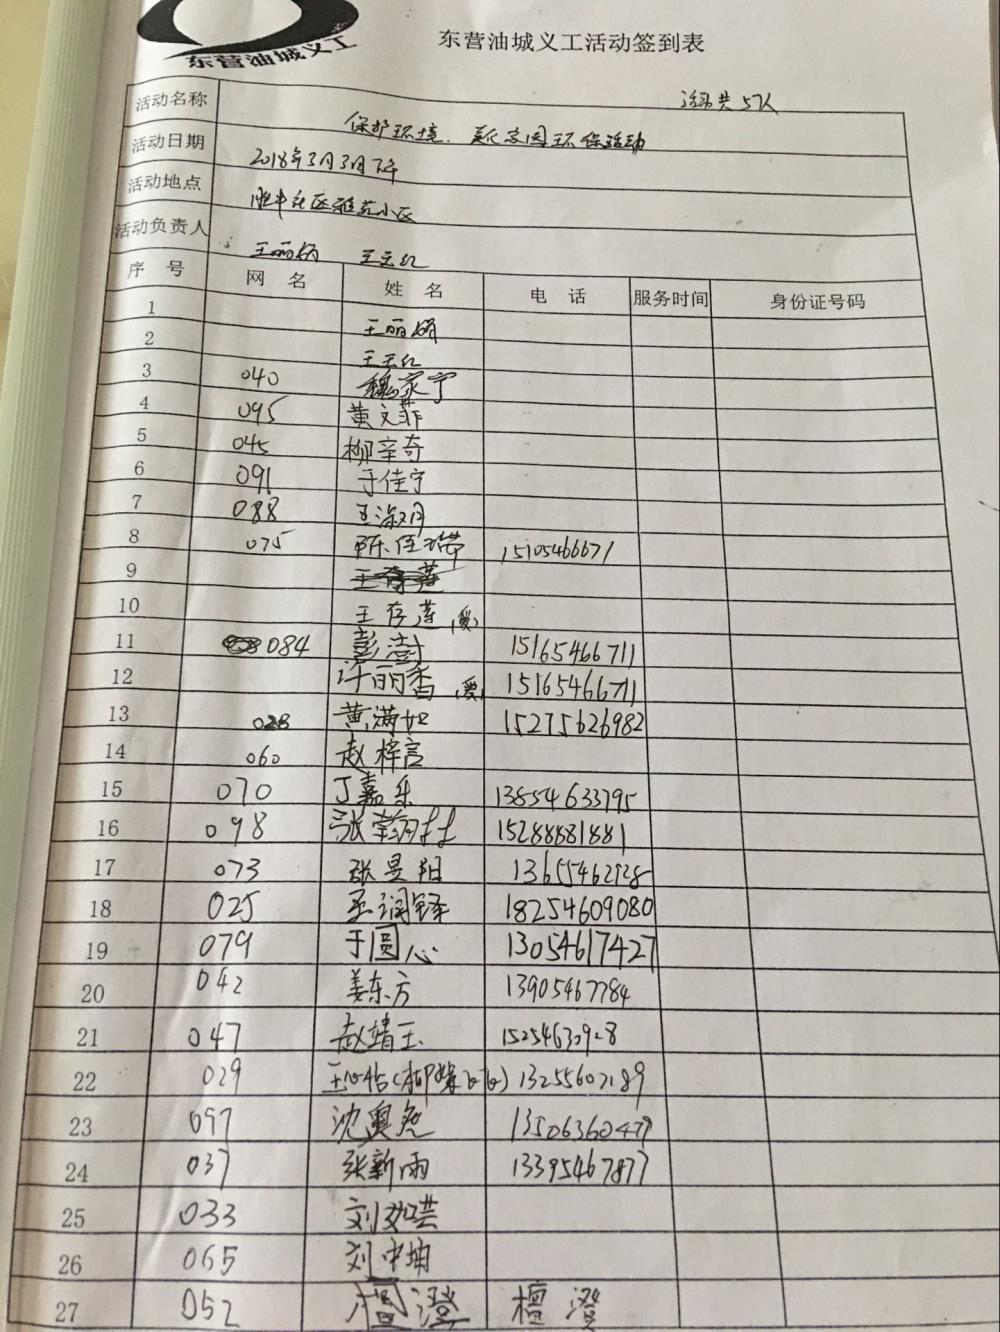 东营油城义工
东营油城义工活动签到表
活动共57人
活动名称 保护环境、美化家园环保活动
活动日期 2018年3月3日下午
活动地点 胜中社区雅苑小区
活动负责人 王丽娟 王玉红
序 号 网 名 姓 名 电 话 服务时间 身份证号码
1 王丽娟
2 王玉红
3 040 魏家宁
4 095 黄文菲
5 045 柳辛奇
6 091 于佳宁
7 088 王淑月
8 075 15105466671
9
10 王存莲(爱)
11 084 彭澍 15165466711
12 许丽香(爱) 15165466711
13 028 黄满如 15275626982
14 060 赵梓言
15 070 丁嘉乐 13854633795
16 098 15288881881
17 073 张昱阳 13655462728
18 025 王润铎 18254609080
19 079 于圆心 13054617427
20 042 姜东方 13905467784
21 047 赵靖玉
22 029 13255607189
23 097 沈奥尧 13506360479
24 037 张新雨 13395467877
25 033 刘如芸
26 065 刘中坤
27 052 檀澄 檀澄